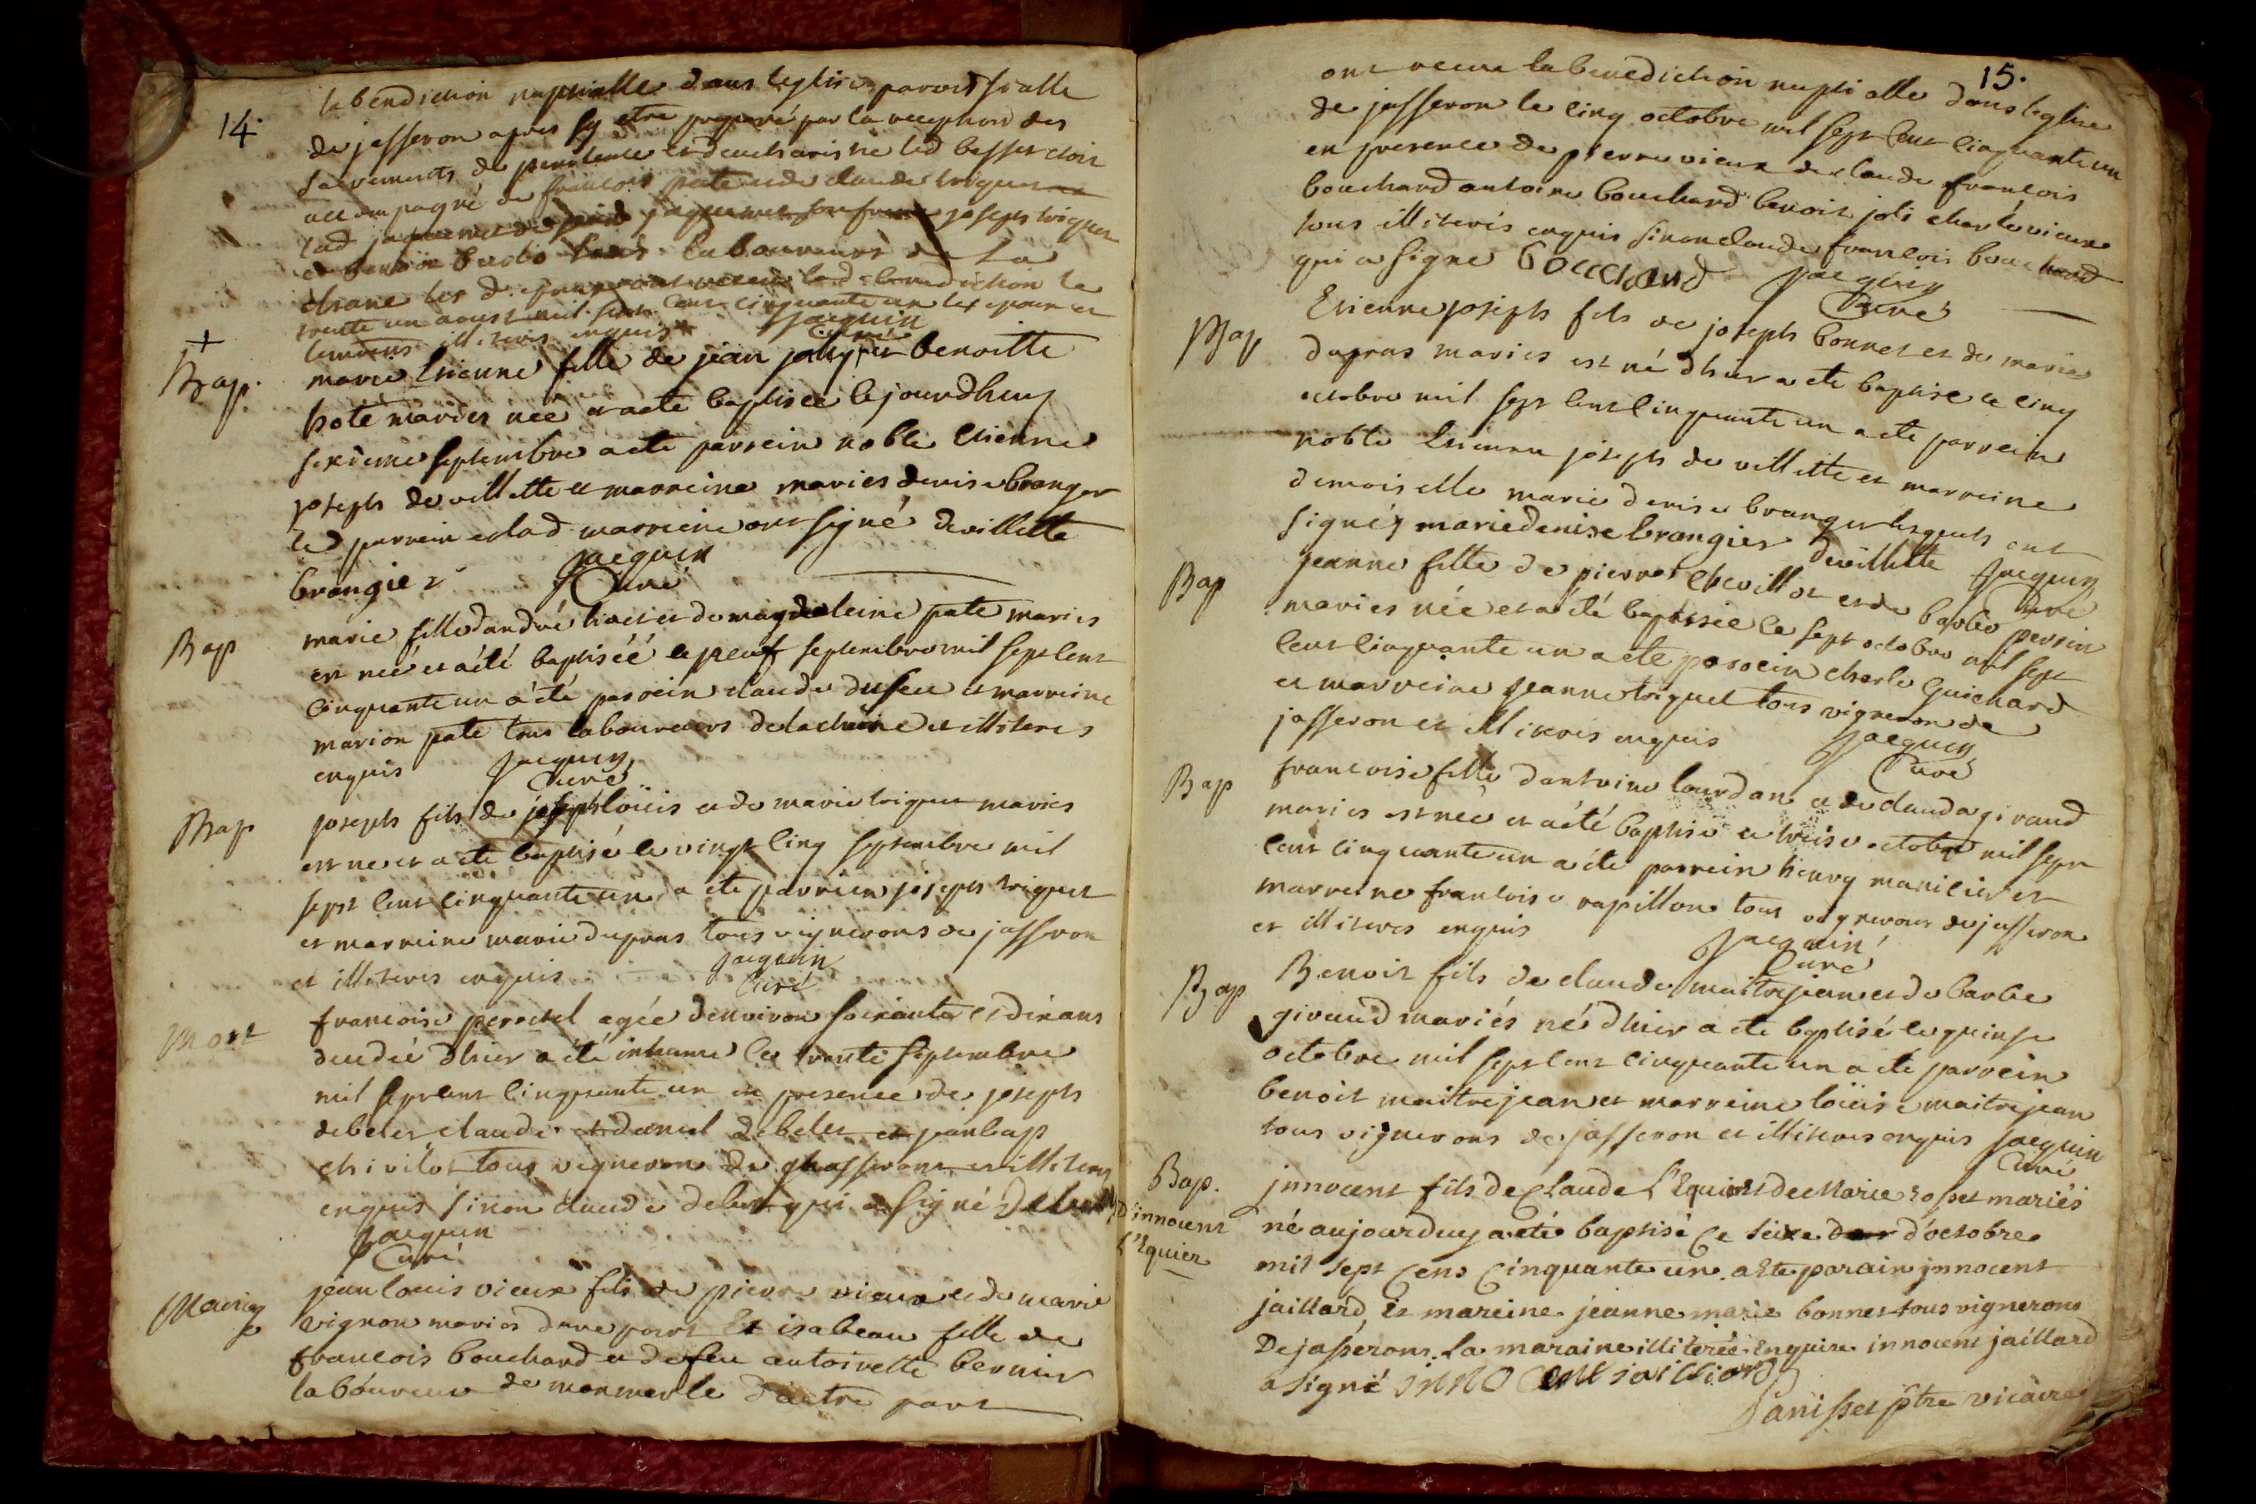 14.
la bendiction nuptialle dans leglise parroissialle
de jasseron apres sy etre preparé par la reception des
sacrements de penitence et deucharistie led besset etoit
accompagné de francois pate et de claude triquet
lad joseph triquet
et tous laboureurs de la
chane les d. ont receu lad benediction le
trente un aoust mil sept cent cinquante un les epoux et
temoins illiterés enquis Jacquin
Curé
+
Bap. marie Etienne fille de jean joly et benoitte
pate mariés née et a eté baptisée le jourdhuy
sixieme septembre a eté parrein noble etienne
joseph de villette et marreine maries denise branger
le parrein et lad marreine ont signé devillette
brangier Jacquin
Curé
Bap marie fille dandré et de magdeleine pate mariés
est née et a été baptiséé le neuf septembre mil sept cent
cinquante un a été parrein claude dufeu et marreine
marion pate tous laboureurs de la chane et illiterés
enquis Jacquin
Curé
Bap joseph fils de joseph loüis et de marie triquet mariés
est né et a eté baptisé le vingt cinq septembre mil
sept cent cinquante un a eté parrein joseph triquet
et marreine marie dupras tous vignerons de jasseron
et illiterés enquis Jacquin
Curé
Mort francoise perretel agée denviron soixante et dix ans
decedée dhier a été inhumé le trente septembre
mil sept cent cinquante un en presence de joseph
debeler claude et daniel debeler et jeanbap
chivilot tous vigneron de jasseron et illiterés
enquis sinon claude debeler qui a signé
Jacquin
Curé
Mariage jean louis vieux fils de pierre vieux et de marie
vignon mariés dune part Et isabeau fille de
francois bouchard et de feu antoinette bernier
laboureur de marmerle dautre part
15.
ont receu la benediction nuptialle dans leglise
de jasseron le cinq octobre mil sept cent cinquante un
en presence de pierre vieux de claude francois
bouchard antoine bouchard benoit joli charle vieux
tous illiterés enquis sinon claude francois bouchard
qui a signé Bouchard Jacquin
Curé
Bap Etienne joseph fils de joseph bonnet et de marie
dupras mariés est né dhier a eté baptisé le cinq
octobre mil sept cent cinquante un a eté parrein
noble Etienne joseph de villette et marreine
demoiselle marie denise branger lesquels ont
signés mariedenise brangier devillette Jacquin
Curé
Bap jeanne fille de pierre chevillot et de barbe perrin
mariés née et a été baptisée le sept octobre mil sept
cent cinquante un a eté parrein charle guichard
et marreine jeanne triquet tous vigneron de
jasseron et illiterés enquis Jacquin
Curé
Bap francoise fille dantoine lourdan et de clauda giraud
mariés est née et a été baptisé le treise octobre mil sept
cent cinquante un a été parrein henry manicier et
marreine francoise rapillon tous vignerons de jasseron
et illiterés enquis Jacquin
Curé
Bap Benoit fils de claude maitrejean et de barbe
giraud mariés né dhier a eté baptisé le quinse
octobre mil sept cent cinquante un a eté parrein
benoit maitrejean et marreine loüise maitrejean
tous vignerons de jasseron et illiterés enquis Jacquin
Curé
Bap. jnnocent fils de Claude l'Equier et de Marie rosset mariés
D'innocent né aujourduy a eté baptisé ce seize d'octobre
l'Equier mil sept cens cinquante un a Eté parain jnnocent
jaillard, et mareine jeanne marie bonnet tous vignerons
De jasseron. la maraine illiterée Enquise innocent jaillard
a signé inno cent jaillard
Panisset ptre vicaire